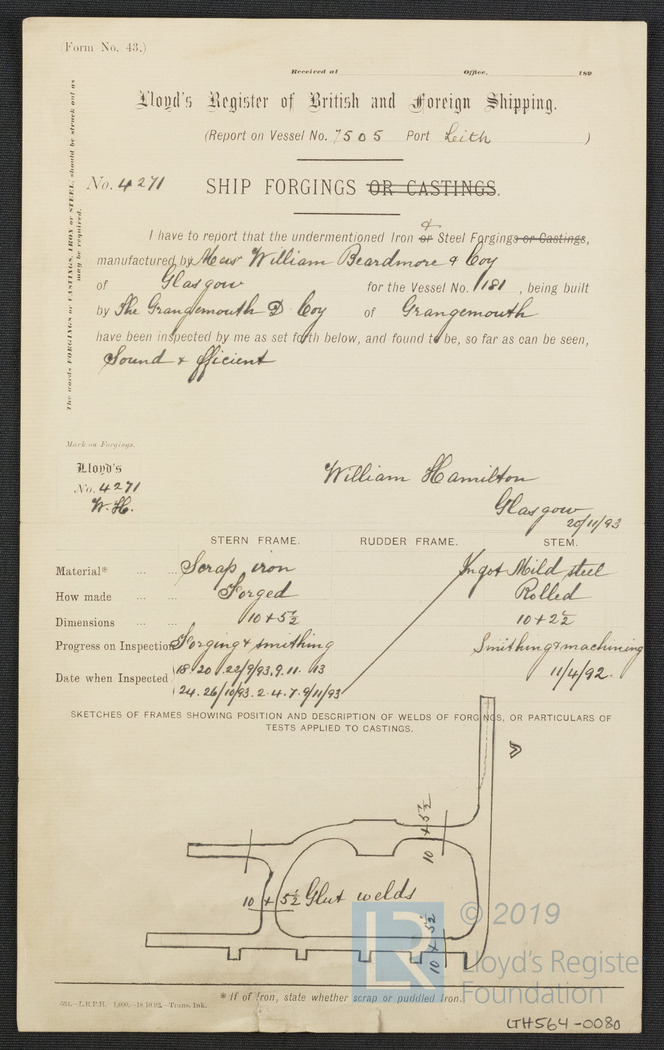 (Form No. 43.)
Received at Office, 189
Lloyd's Register of British and Foreign Shipping.
(Report on Vessel No. 7505 Port Leith )
No. 4271 SHIP FORGINGS OR CASTINGS.
The words FORGINGS or CASTINGS, IRON or STEEL, should be struck out as may be required.
I have to report that the undermentioned Iron or & Steel Forgings or Castings,
manufactured by Messrs William Beardmore & Coy
of Glasgow for the Vessel No. 181, being built
by The Grangemouth D. Coy of Grangemouth
have been inspected by me as set forth below, and found to be, so far as can be seen,
Sound & Efficient
Mark on Forgings.
Lloyd's
No. 4271
W. H.
William Hamilton
Glasgow
20/11/93
STERN FRAME. RUDDER FRAME. STEM.
Material* ... ... Scrap iron Ingot Mild steel
How made ... ... Forged Rolled
Dimensions ... ... 10 + 5½ 10 + 2½
Progress on Inspection Forging & smithing Smithing & machining
Date when Inspected 18. 20. 22/9/93. 9. 11. 13 11/4/92.
24. 26/10/93. 2. 4. 7. 9/11/93
SKETCHES OF FRAMES SHOWING POSITION AND DESCRIPTION OF WELDS OF FORGINGS, OR PARTICULARS OF
TESTS APPLIED TO CASTINGS.
10 + 5½
10 + 5½ Glut welds
10 + 5½
LR
© 2019
Lloyd's Registe
Foundation
* If of Iron, state whether scrap or puddled Iron.
—L.R.P.H. 1,000.—18.10.92.—Trans. Ink.
LTH564-0080